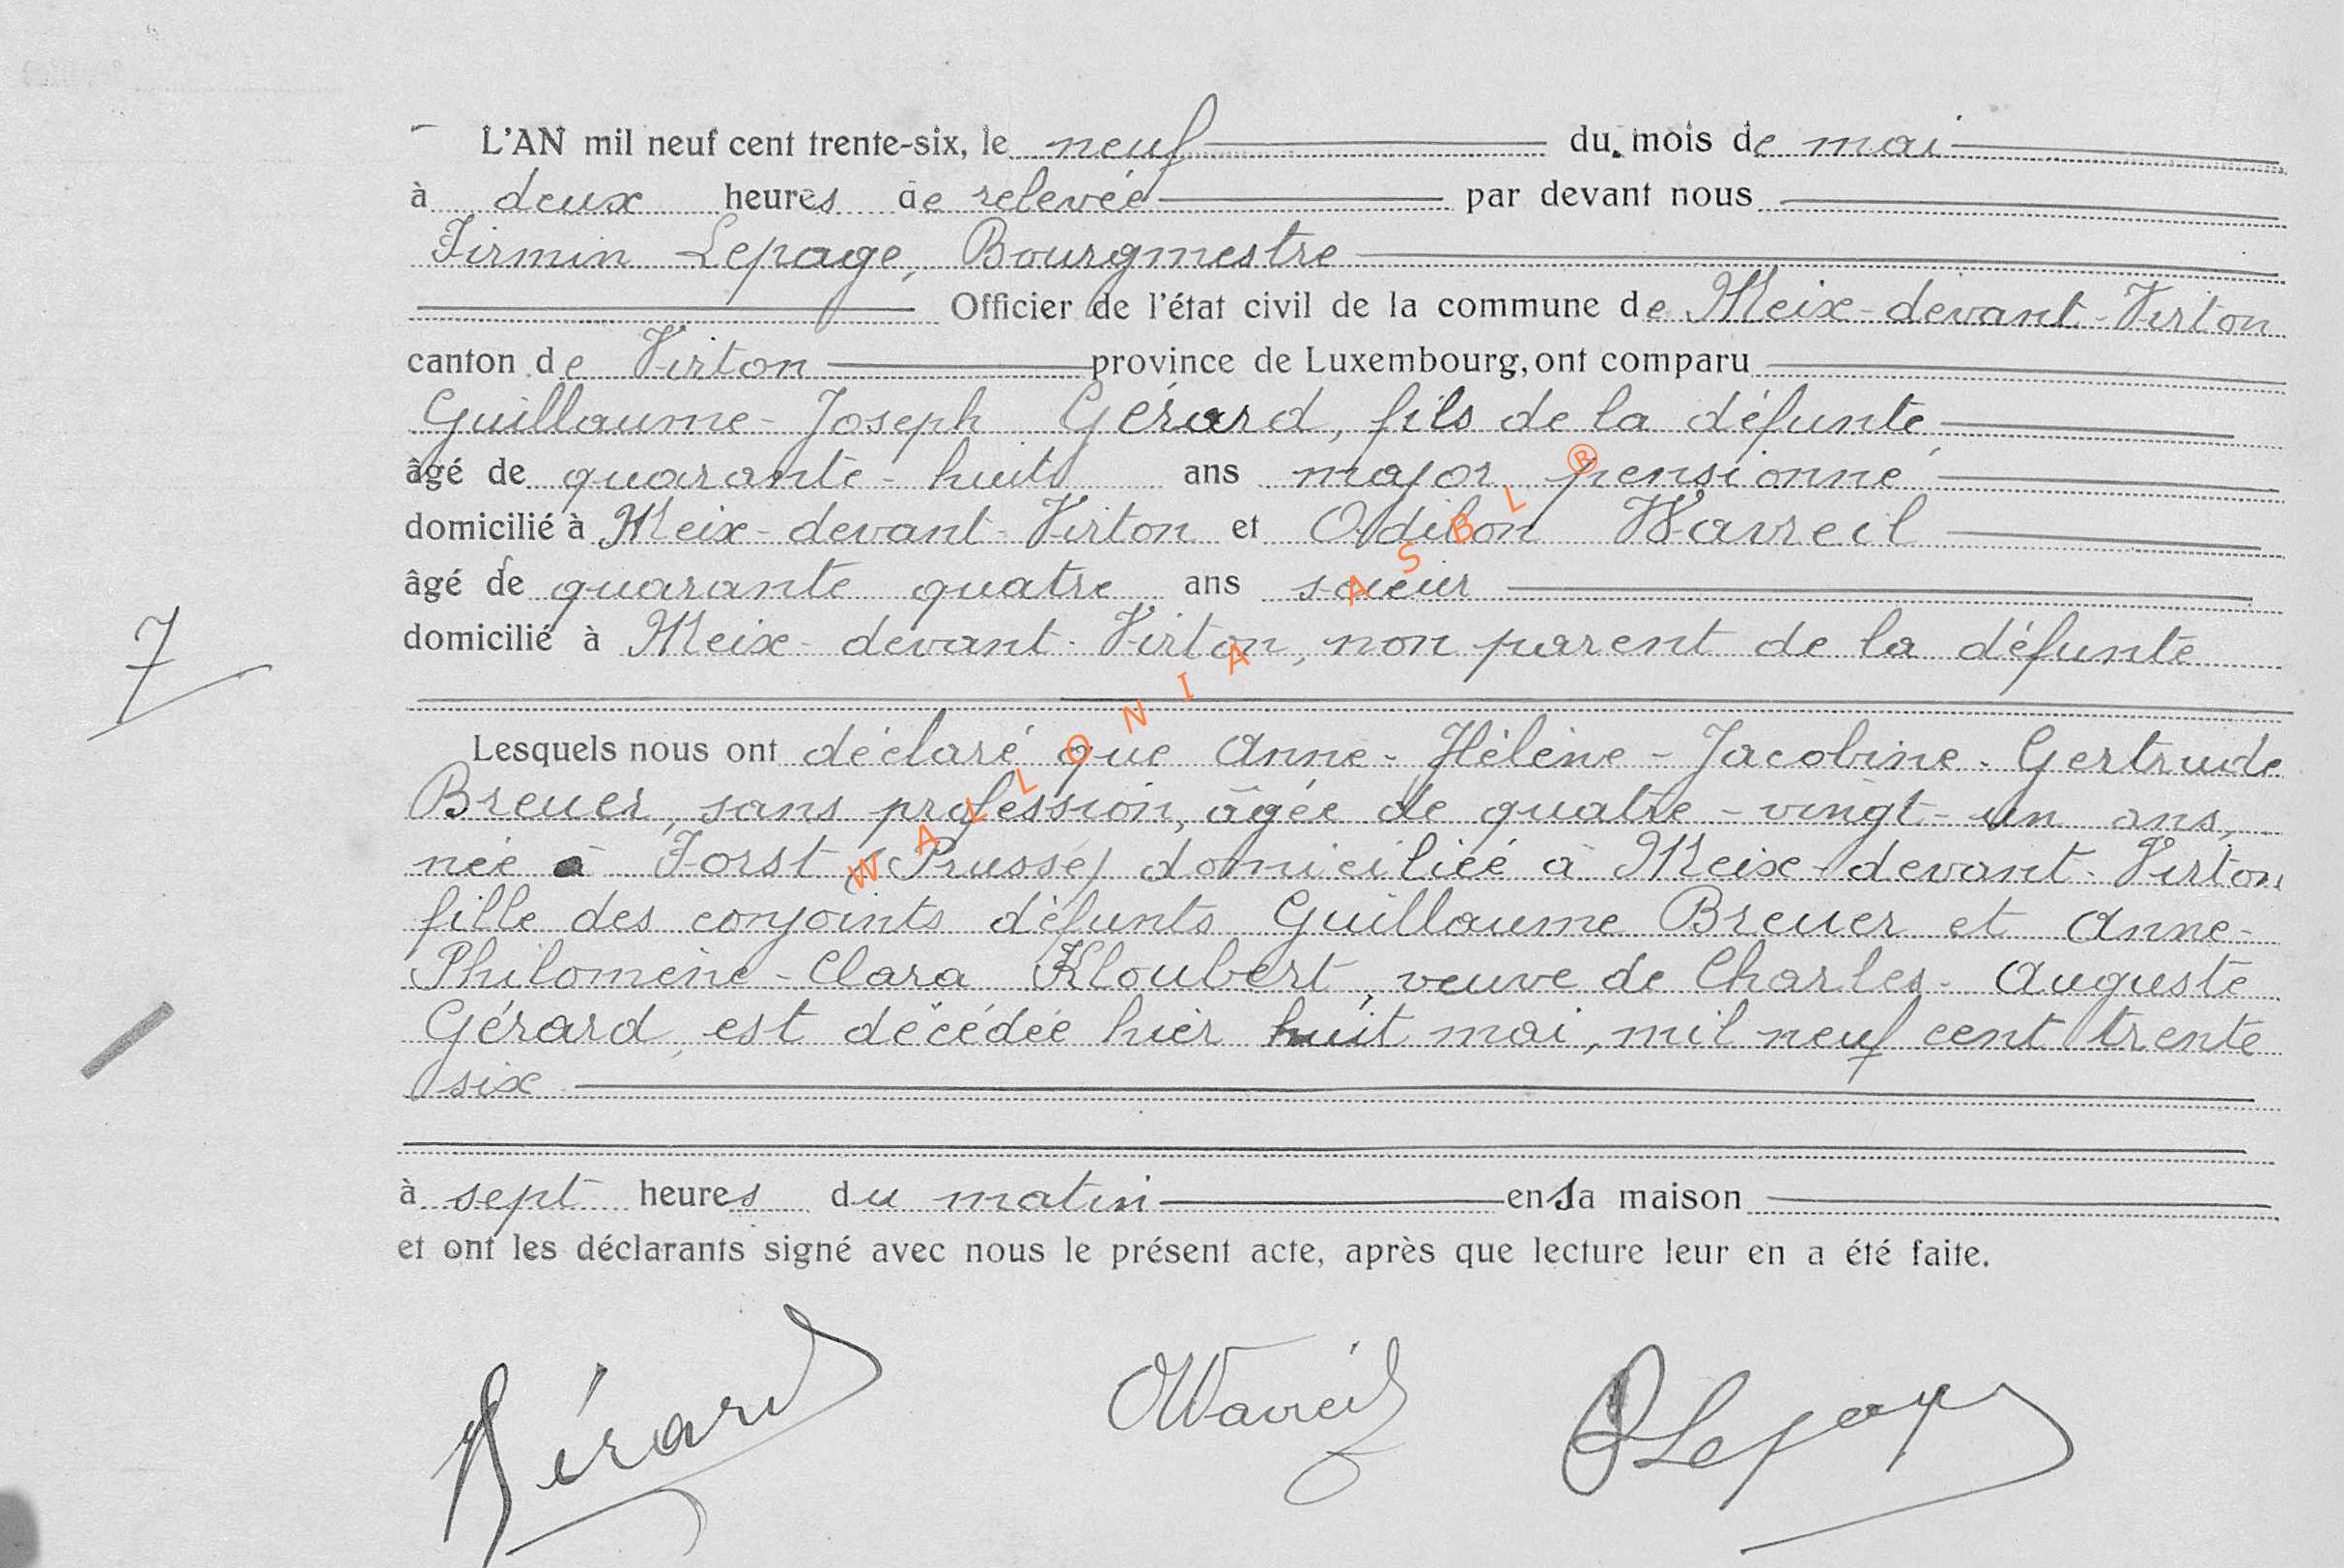 L'AN mil neuf cent trente-six, le neuf du mois de mai
à deux heures de relevée par devant nous
Firmin Lepage, Bourgmestre
Officier de l'état civil de la commune de Meix-devant-Virton
canton de Virton province de Luxembourg, ont comparu
Guillaume-Joseph Gérard, fils de la défunte
âgé de quarante-huit ans major pensionné
domicilié à Meix-devant-Virton et Odilon Wavreil
âgé de quarante quatre ans scieur
domicilié à Meix-devant-Virton, non parent de la défunte
7
Lesquels nous ont déclaré que Anne-Hélène-Jacobine-Gertrude
Breuer, sans profession, âgée de quatre-vingt-un ans,
née à Forst (Prusse) domiciliée à Meix-devant-Virton
fille des conjoints défunts Guillaume Breuer et Anne-
Philomène-Clara Kloubert, veuve de Charles-Auguste
Gérard, est décédée hier huit mai, mil neuf cent trente
six
à sept heures du matin en sa maison
et ont les déclarants signé avec nous le présent acte, après que lecture leur en a été faite.
Gérard OWavreil FLepage
WALLONIA ASBL ®